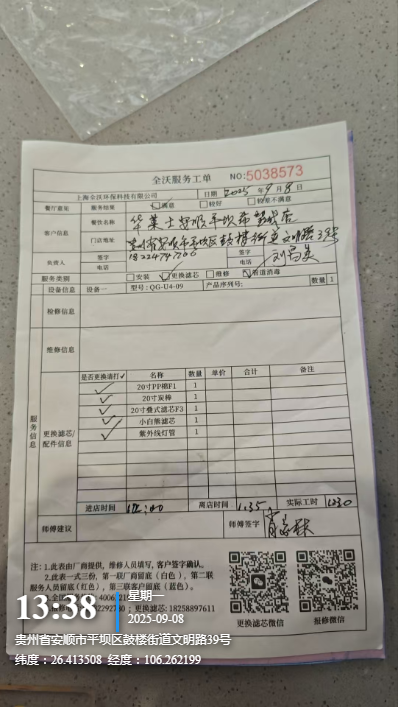 全沃服务工单 NO:5038573
上海全沃环保科技有限公司 日期 2025年9月8日
餐厅意见 服务结果 满意 较好 较差不满意
客户信息 餐饮名称 华莱士安顺平坝希望城店
门店地址 贵州省安顺市平坝区鼓楼街道文明路39号
负责人 签字 签字
电话 电话
服务类别 安装 更换滤芯 维修 管道消毒
设备信息 设备一 型号:QG-U4-09 产品序列号: 数量 1
检修信息
维修信息
服务信息 更换滤芯/配件信息
是否更换请打✓ 名称 数量 单价 合计 备注
✓ 20寸PP棉F1 1
✓ 20寸炭棒 1
✓ 20寸叠式滤芯F3 1
✓ 小白熊滤芯 1
✓ 紫外线灯管 1
进店时间 离店时间 1:35 实际工时
师傅建议 师傅签字
注:1.此表由厂商提供,维修人员填写,客户签字确认。
2.此表一式三份,第一联厂商留底(白色),第二联
服务人员留底(红色),第三联客户留底(蓝色)。
更换滤芯:18258897611
更换滤芯微信 报修微信
13:38 星期一
2025-09-08
贵州省安顺市平坝区鼓楼街道文明路39号
纬度:26.413508 经度:106.262199